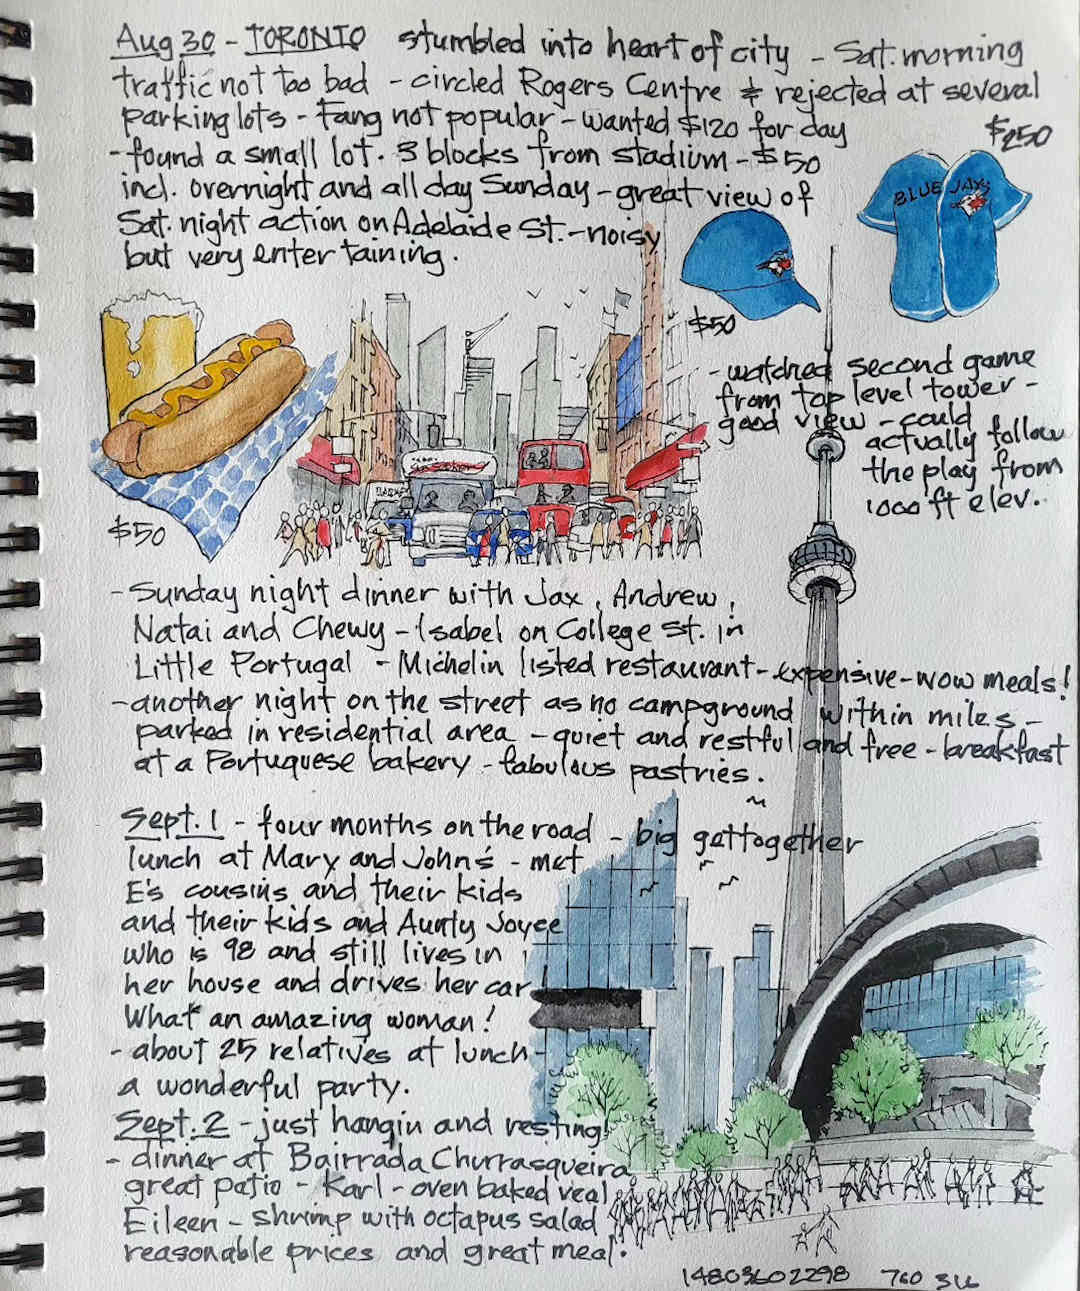 Aug 30 - TORONTO stumbled into heart of city - Sat. morning
traffic not too bad - circled Rogers Centre & rejected at several
parking lots - Fang not popular - wanted $120 for day
- found a small lot. 3 blocks from stadium - $50
incl. overnight and all day Sunday - great view of
Sat. night action on Adelaide St. - noisy
but very entertaining.
$250
BLUE JAYS
$50
- watched second game
from top level tower -
good view - could
actually follow
the play from
1000 ft elev..
$50
- Sunday night dinner with Jax, Andrew,
Natai and Chewy - Isabel on College St. in
Little Portugal - Michelin listed restaurant - expensive - wow meals!
- another night on the street as no campground within miles -
parked in residential area - quiet and restful and free - breakfast
at a Portuguese bakery - fabulous pastries.
Sept. 1 - four months on the road - big gettogether
lunch at Mary and John's - met
E's cousins and their kids
and their kids and Aunty Joyce
who is 98 and still lives in
her house and drives her car
What an amazing woman!
- about 25 relatives at lunch -
a wonderful party.
Sept. 2 - just hangin and resting!
- dinner at Bairrada Churrasqueira
great patio - Karl - oven baked veal
Eileen - shrimp with octapus salad
reasonable prices and great meal.
14803602298 760 316